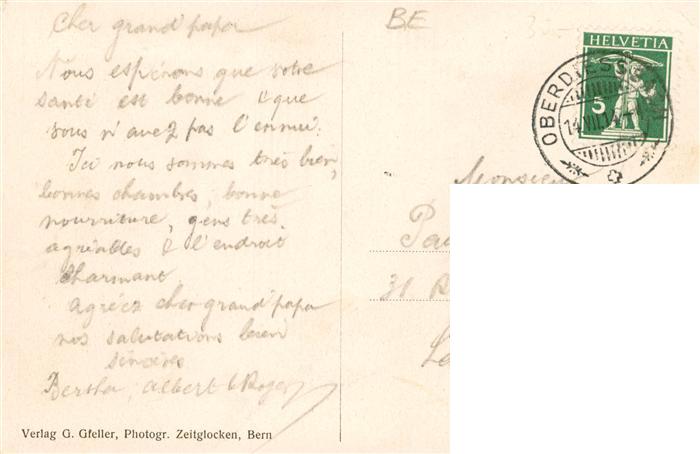 Cher grand papa
Nous espérons que votre
santé est bonne & que
vous n'avez pas l'ennui.
Ici nous sommes très bien,
bonnes chambres, bonne
nourriture, gens très
agréables & l'endroit
charmant
agréez cher grand papa
nos salutations bien
sincères
Bertha, Albert & Roger
Verlag G. Gfeller, Photogr. Zeitglocken, Bern
BE
HELVETIA
5
OBERDIESSBACH
14.VII.14
Monsieur
31